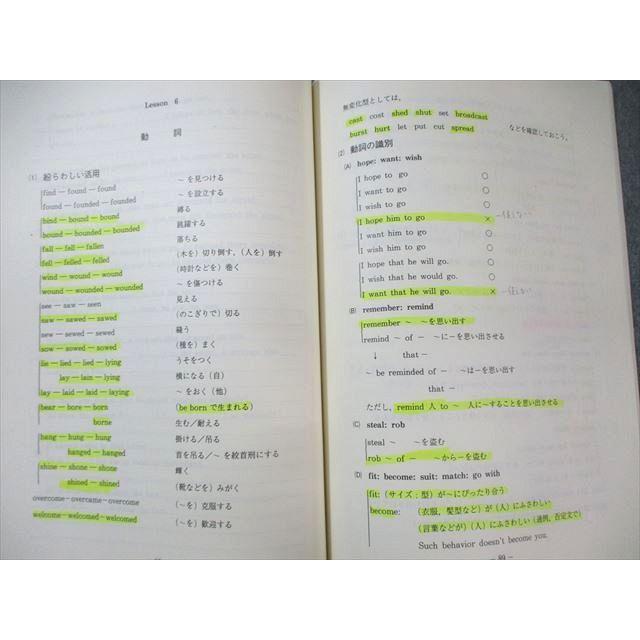 Lesson 6
動 詞
(1) 紛らわしい活用
find ― found ― found ～を見つける
found ― founded ― founded ～を設立する
bind ― bound ― bound 縛る
bound ― bounded ― bounded 跳躍する
fall ― fell ― fallen 落ちる
fell ― felled ― felled (木を) 切り倒す, (人を) 倒す
wind ― wound ― wound (時計などを) 巻く
wound ― wounded ― wounded ～を傷つける
see ― saw ― seen 見える
saw ― sawed ― sawed (のこぎりで) 切る
sew ― sewed ― sewed 縫う
sow ― sowed ― sowed (種を) まく
lie ― lied ― lied ― lying うそをつく
lay ― lain ― lying 横になる (自)
lay ― laid ― laid ― laying ～をおく (他)
bear ― bore ― born (be born で生まれる)
borne 生む/耐える
hang ― hung ― hung 掛ける/吊る
hanged ― hanged 首を吊る/～を絞首刑にする
shine ― shone ― shone 輝く
shined ― shined (靴などを) みがく
overcome―overcame―overcome (～を) 克服する
welcome―welcomed―welcomed (～を) 歓迎する
無変化型としては,
cast cost shed shut set broadcast
burst hurt let put cut spread などを確認しておこう。
(2) 動詞の識別
(A) hope: want: wish
I hope to go ○
I want to go ○
I wish to go ○
I hope him to go ×
I want him to go ○
I wish him to go ○
I hope that he will go. ○
I wish that he would go. ○
I want that he will go. ×
(B) remember: remind
remember ～ ～を思い出す
remind ～ of ― ～に―を思い出させる
↓ that ―
～ be reminded of ― ～は―を思い出す
that ―
ただし, remind 人 to ～ 人に～することを思い出させる
(C) steal: rob
steal ～ ～を盗む
rob ～ of ― ～から―を盗む
(D) fit: become: suit: match: go with
fit: (サイズ:型) が～にぴったり合う
become: (衣服, 髪型など) が (人) にふさわしい
(言葉などが) (人) にふさわしい (通例, 否定文で)
Such behavior doesn't become you.
― 89 ―